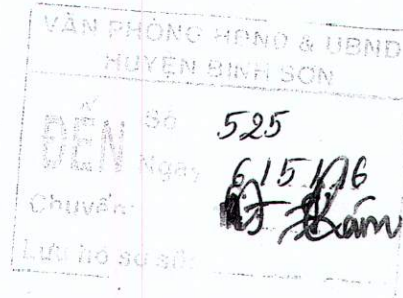 VĂN PHÒNG HĐND & UBND
HUYỆN BÌNH SƠN
ĐẾN
Số 525
Ngày 6/5/16
Chuyển:
Lưu hồ sơ số: